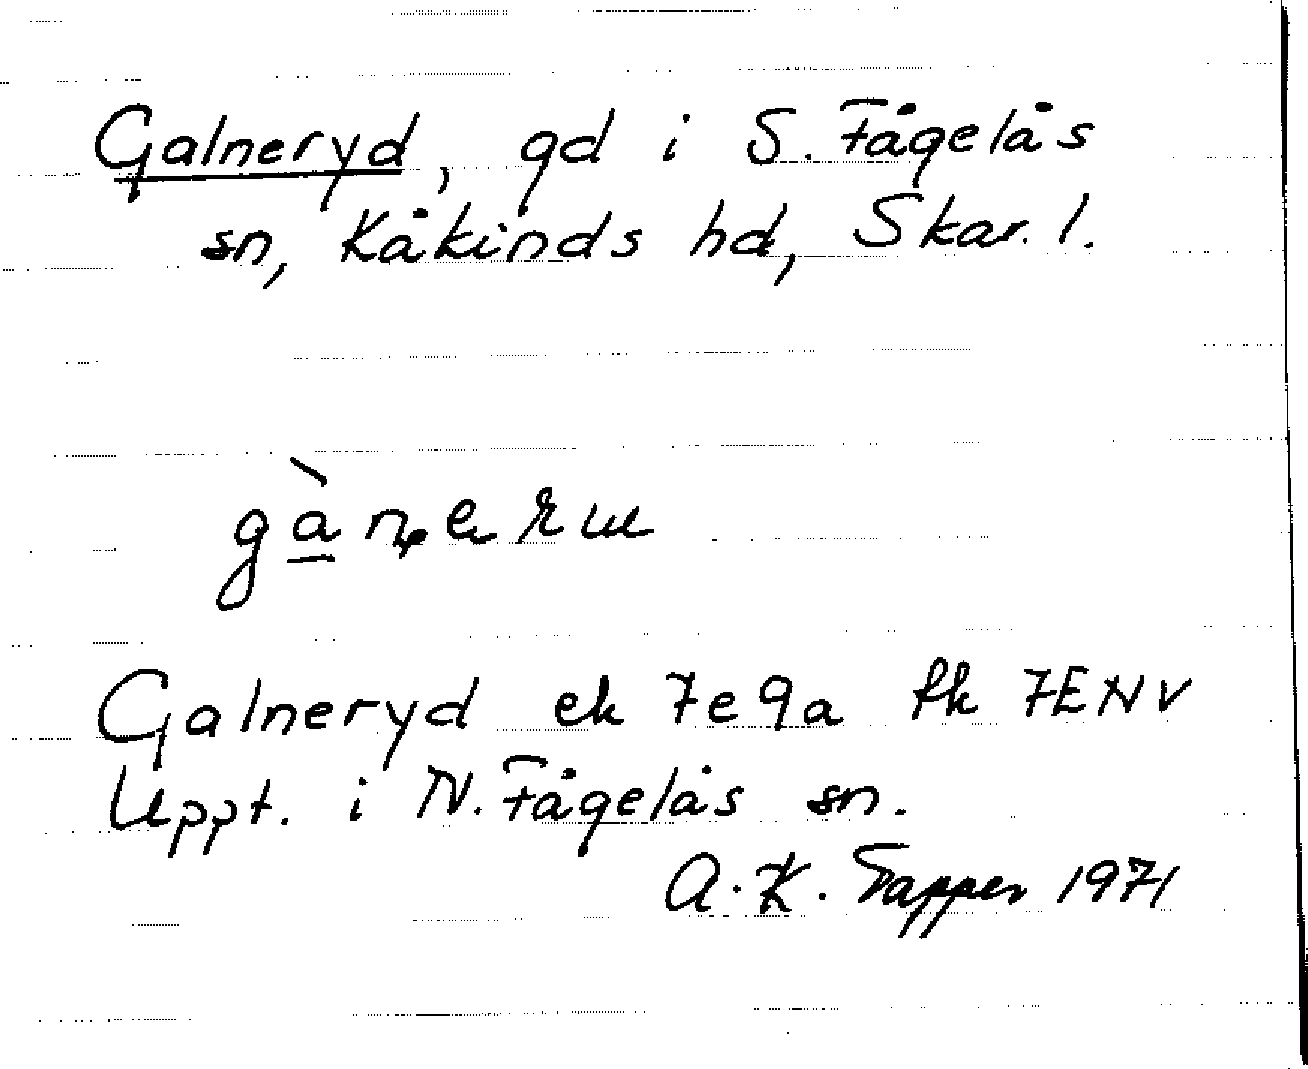 Galneryd, gd i S. Fågelås
sn, Kåkinds hd, Skar. l.
Galneryd ek 7e9a fk 7ENV
Uppt. i N. Fågelås sn.
A.K. Tapper 1971